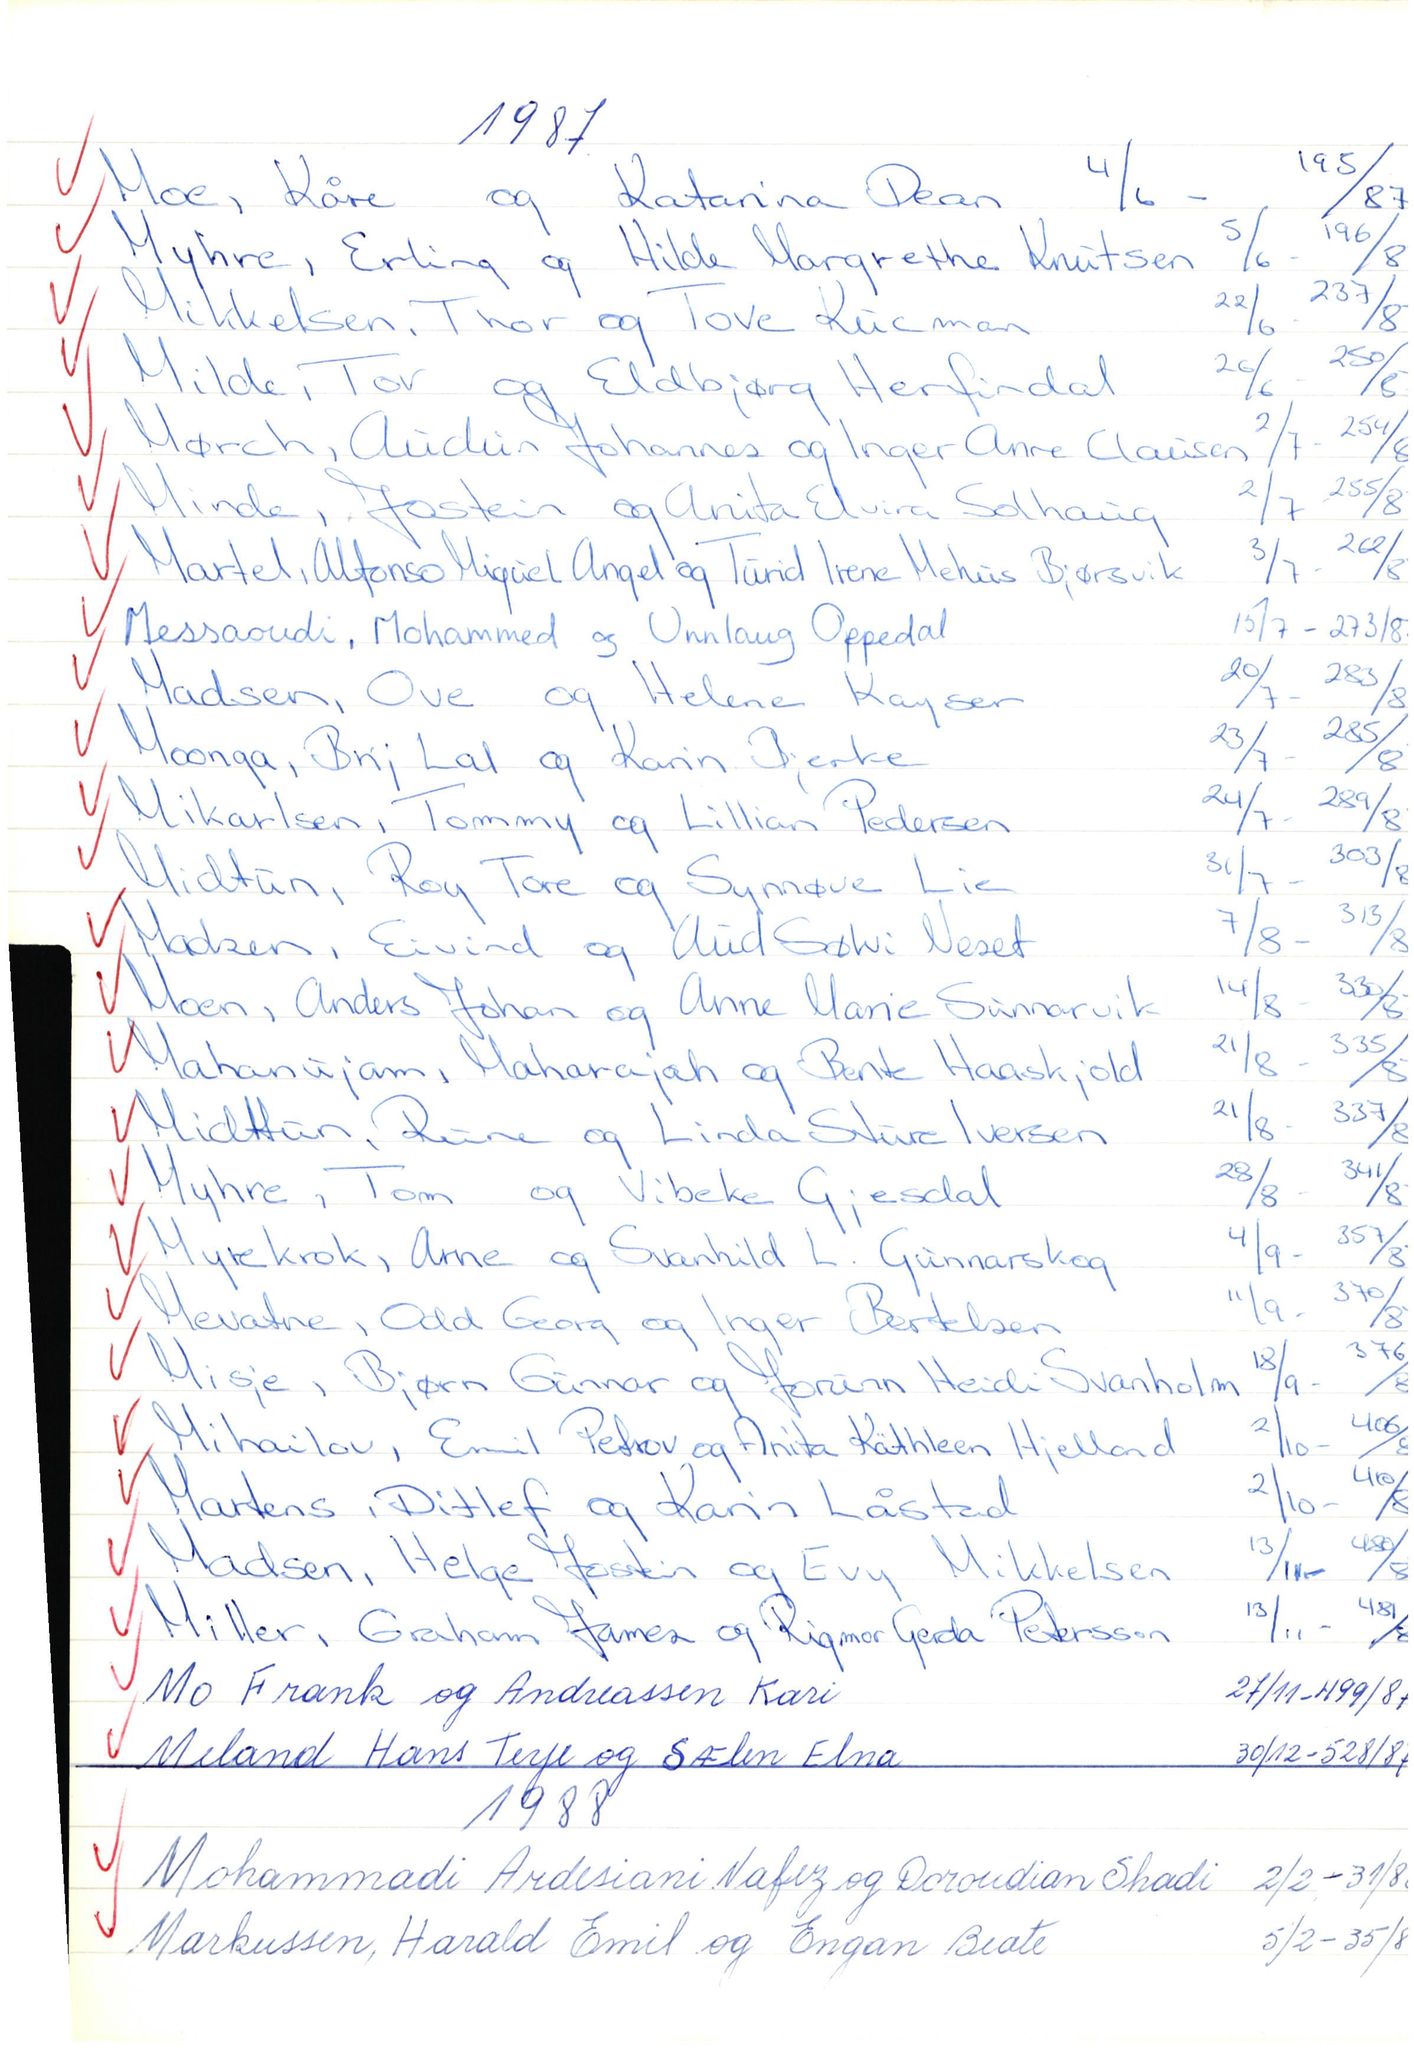 1987
Moe, Kåre og Katarina Dean 4/6 - 195/87
Myhre, Erling og Hilde Margrethe Knutsen 5/6 - 196/8
Mikkelsen, Thor og Tove Kucman 22/6 - 237/8
Milde, Tor og Eldbjørg Herfindal 26/6 - 250/8
Mørch, Audun Johannes og Inger Anne Clausen 2/7 - 254/8
Minde, Jostein og Anita Elvira Solhaug 2/7 - 255/8
Martel, Alfonso Miguel Angel og Turid Irene Mehus Bjørsvik 3/7 - 262/8
Messaoudi, Mohammed og Unnlaug Oppedal 15/7 - 273/8
Madsen, Ove og Helene Kayser 20/7 - 283/8
Moonga, Brij Lal og Karin Bjerke 23/7 - 285/8
Mikarlsen, Tommy og Lillian Pedersen 24/7 - 289/8
Midtun, Roy Tore og Synnøve Lie 31/7 - 303/8
Madsen, Eivind og Aud Sølvi Neset 7/8 - 313/8
Moen, Anders Johan og Anne Marie Sunnarvik 14/8 - 330/8
Mahanujam, Maharajah og Bente Haaskjold 21/8 - 335/8
Midttun, Rune og Linda Sture Iversen 21/8 - 337/8
Myhre, Tom og Vibeke Gjesdal 28/8 - 341/8
Myrekrok, Arne og Svanhild L. Gunnarskog 4/9 - 357/8
Mevatne, Odd Georg og Inger Bertelsen 11/9 - 370/8
Misje, Bjørn Gunnar og Jorunn Heidi Svanholm 18/9 - 376/8
Mihailov, Emil Petrov og Anita Käthleen Hjelland 2/10 - 406/8
Martens, Ditlef og Karin Låstad 2/10 - 410/8
Madsen, Helge Jostein og Evy Mikkelsen 13/11 - 480/8
Miller, Graham James og Rigmor Gerda Petersson 13/11 - 481/8
Mo Frank og Andreassen Kari 27/11 - 499/87
Meland Hans Terje og Sælen Elna 30/12 - 528/87
1988
Mohammadi Ardesiani Nafez og Doroudian Shadi 2/2 - 31/8
Markussen, Harald Emil og Engan Beate 5/2 - 35/8